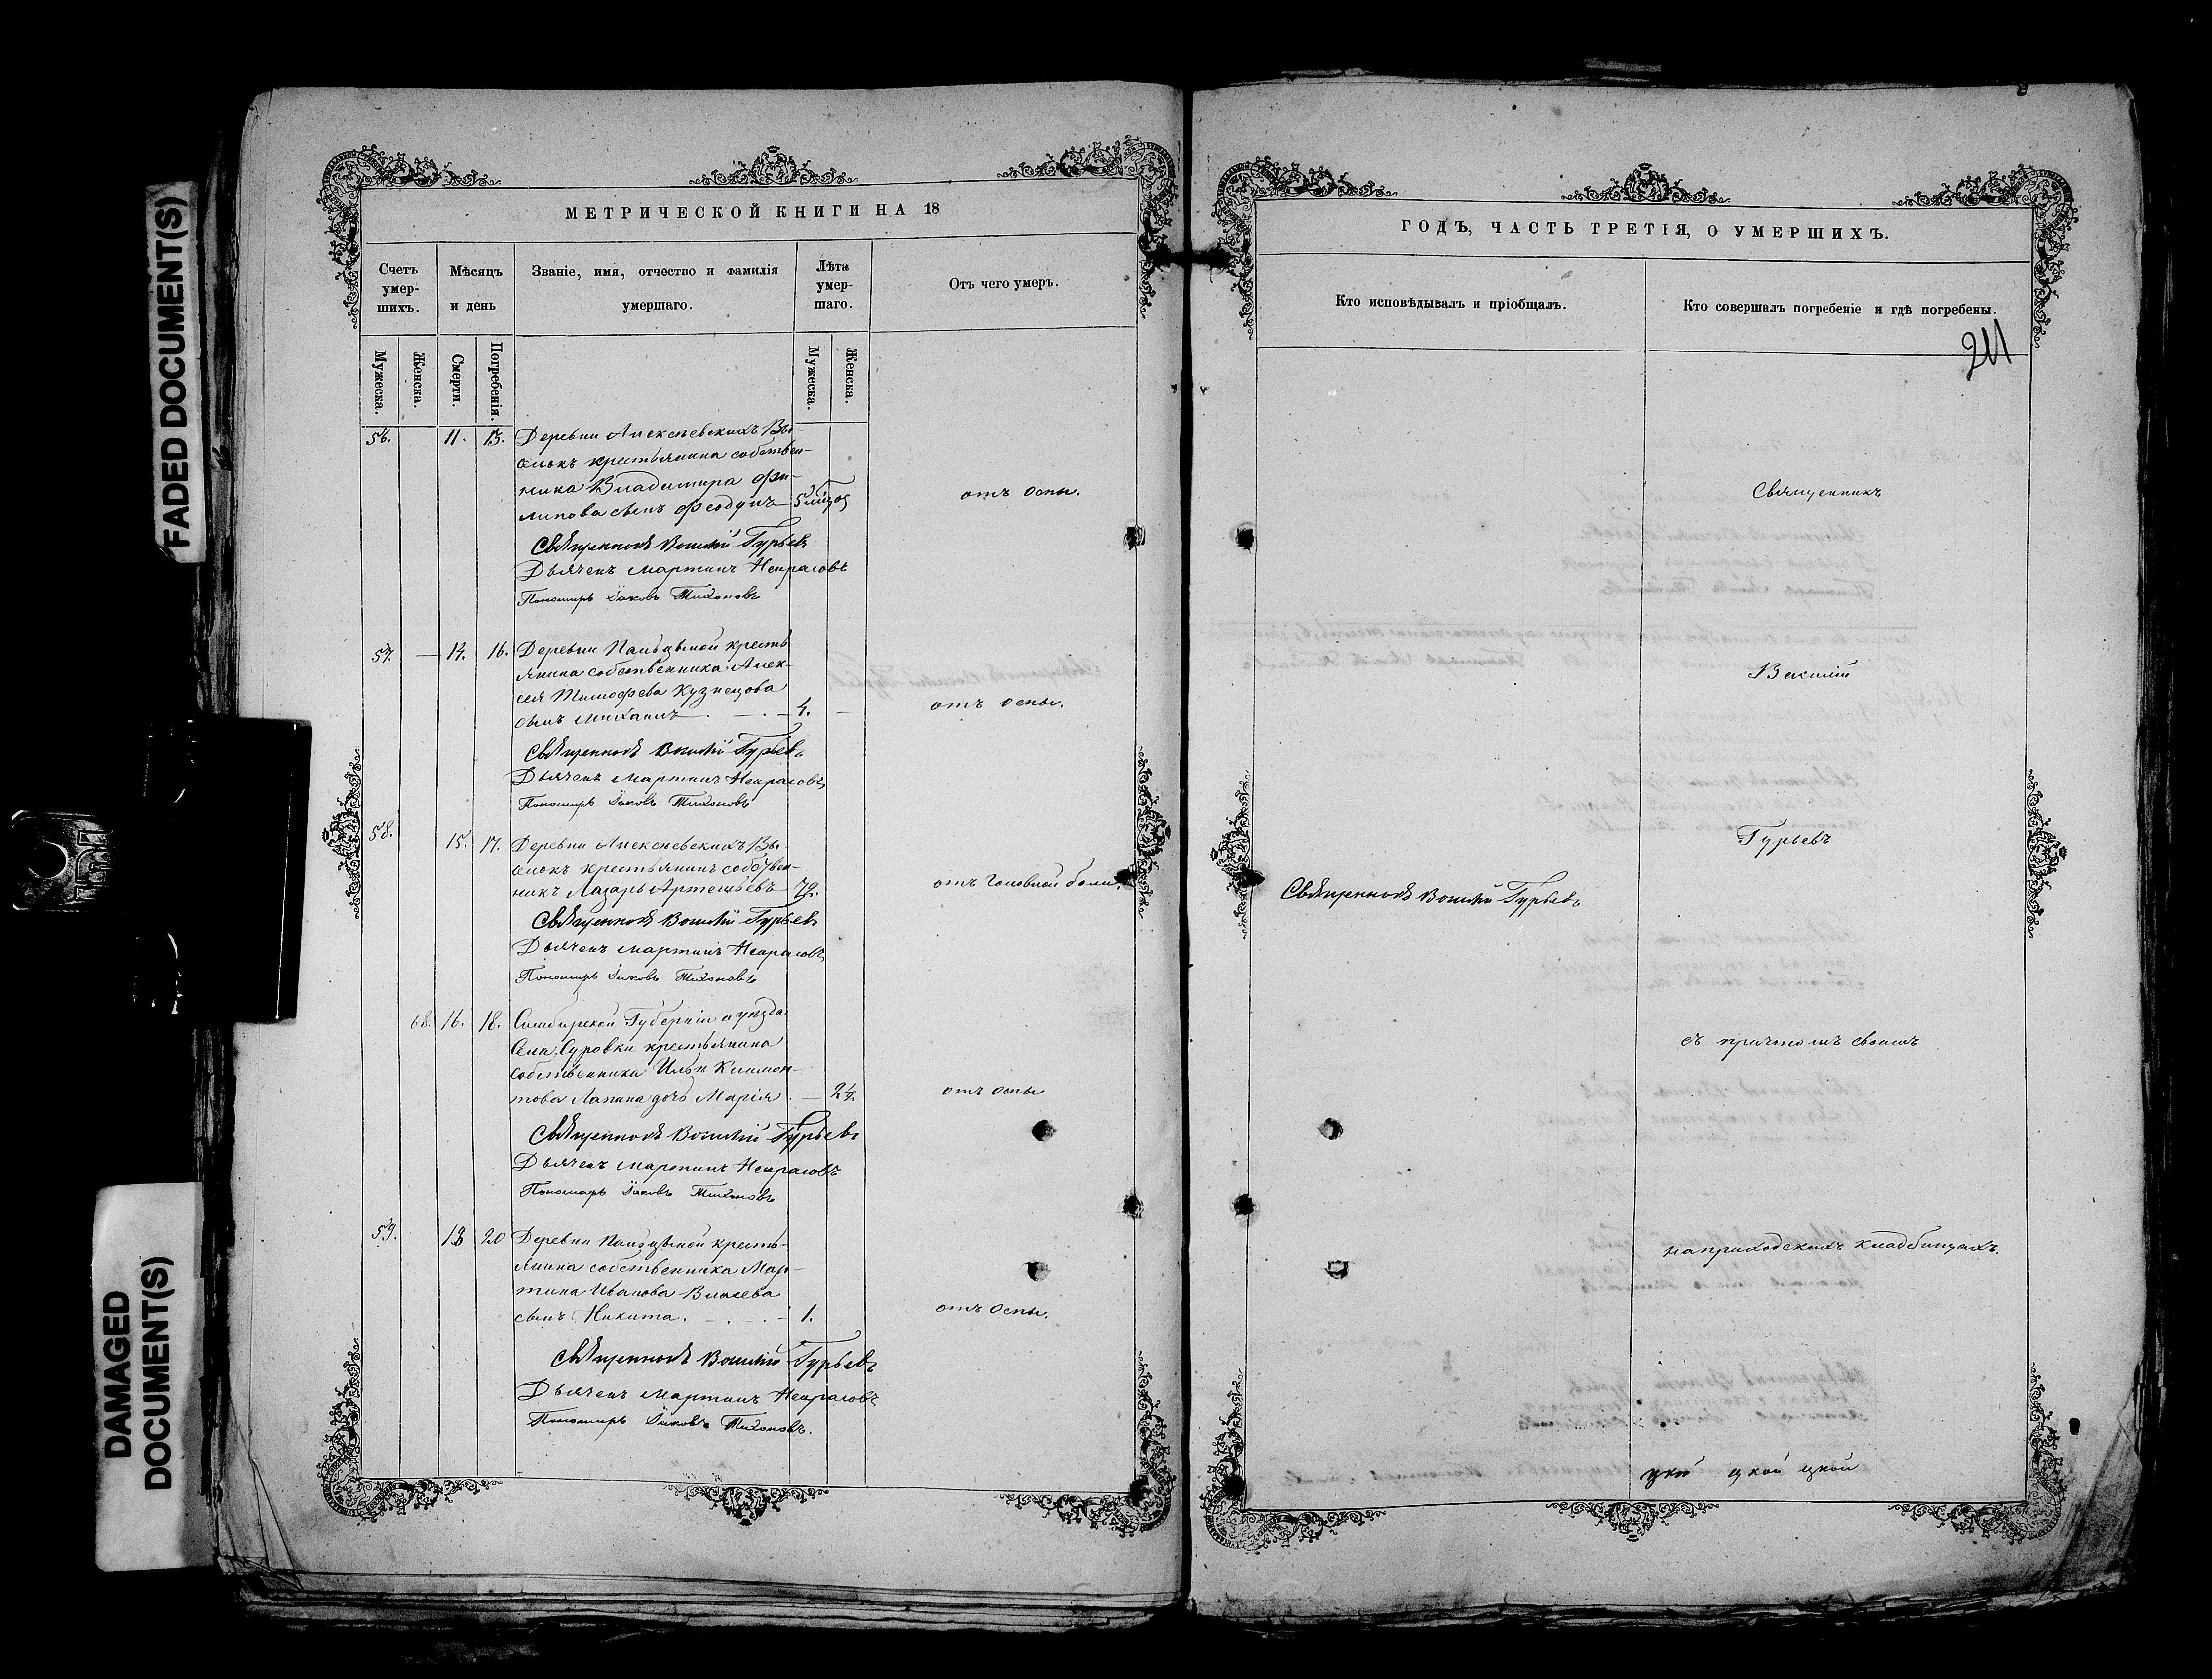 FADED DOCUMENT(S)
DAMAGED
DOCUMENT(S)
МЕТРИЧЕСКОЙ КНИГИ НА 18
Счетъ умер-шихъ.
Мѣсяцъ и день
Званіе, имя, отчество и фамилія умершаго.
Лѣта умер-шаго.
Отъ чего умеръ.
Мужеска.
Женска.
Смерти.
Погребенія.
Мужеска.
Женска.
56. 11. 13. Деревни Алексѣевскихъ Вы-
селокъ крестьянина собствен-
ника Владимира Фи-
липова сынъ Феодулъ
отъ оспы.
Священникъ Василій Гурьевъ
Дьячекъ Мартинъ Некрасовъ
Пономарь Іаковъ Тихоновъ
57. — 14. 16. Деревни Пальцыной кресть
янина собственника Алек-
сея Тимофева Кузнецова
сынъ Михаилъ . — . — 4. — отъ оспы.
Священникъ Василій Гурьевъ
Дьячекъ Мартинъ Некрасовъ
Пономарь Іаковъ Тихоновъ
58. 15. 17. Деревни Алексѣевскихъ Вы-
селокъ крестьянинъ собствен-
никъ Лазарь Артемьевъ 72. отъ головной боли.
Священникъ Василій Гурьевъ
Дьячекъ Мартинъ Некрасовъ
Пономарь Іаковъ Тихоновъ
68. 16. 18. Симбирской Губерніи и уѣзда
села Суровки крестьянина
собственника Ильи Климон-
това Лапина дочь Марія . — 2½. отъ оспы
Священникъ Василій Гурьевъ
Дьячекъ Мартинъ Некрасовъ
Пономарь Іаковъ Тихоновъ
59. 18 20 Деревни Пальцыной кресть-
янина собственника Мар-
тина Иванова Власева
сынъ Никита. — . — . — 1. отъ оспы.
Священникъ Василій Гурьевъ
Дьячекъ Мартинъ Некрасовъ
Пономарь Іаковъ Тихоновъ.
ГОДЪ, ЧАСТЬ ТРЕТІЯ, О УМЕРШИХЪ.
Кто исповѣдывалъ и пріобщалъ.
Кто совершалъ погребеніе и гдѣ погребены.
211
Священникъ
Василій
Гурьевъ
Священникъ Василій Гурьевъ
съ причтомъ своимъ
на приходскихъ кладбищахъ.